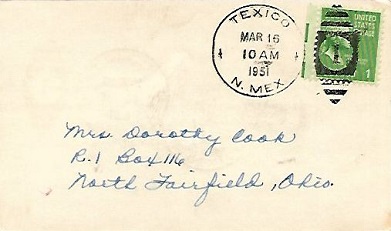 TEXICO
MAR 16
10 AM
1951
N. MEX
UNITED
STATES
1
Mrs. Dorothy Cook
R. 1 Box 116
North Fairfield, Ohio.